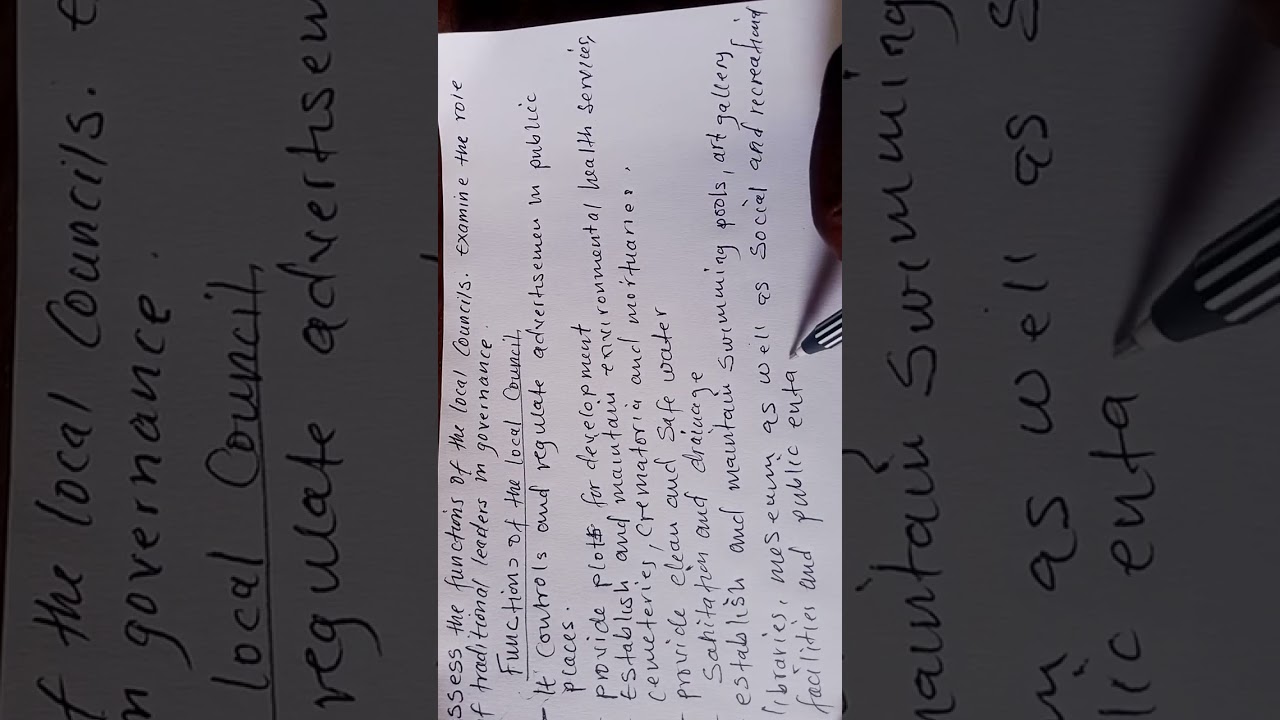 ssess the functions of the local Councils. Examine the role
f traditional leaders in governance.
Functions of the local Council
- It Controls and regulate advertisemen in public
places.
- provide plots for development
- Establish and maintain environmental health services,
cemeteries, crematoria and mortuaries.
- provide clean and safe water
- Sanitation and drainage
- establish and maintain swimming pools, art gallery
libraries, meseum as well as Social and recreationd
facilities and public enta